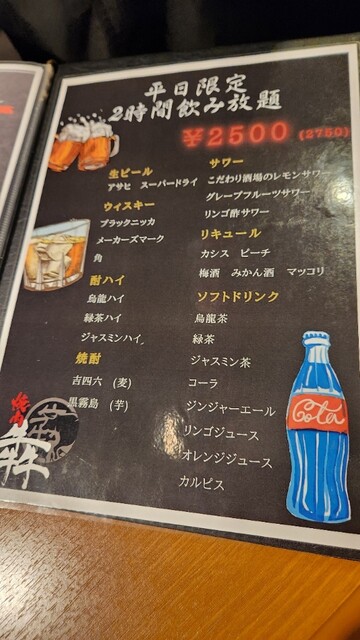 平日限定
2時間飲み放題
¥2500 (2750)
生ビール
アサヒ スーパードライ
ウィスキー
ブラックニッカ
メーカーズマーク
角
酎ハイ
烏龍ハイ
緑茶ハイ
ジャスミンハイ
焼酎
吉四六 (麦)
黒霧島 (芋)
サワー
こだわり酒場のレモンサワー
グレープフルーツサワー
リンゴ酢サワー
リキュール
カシス ピーチ
梅酒 みかん酒 マッコリ
ソフトドリンク
烏龍茶
緑茶
ジャスミン茶
コーラ
ジンジャーエール
リンゴジュース
オレンジジュース
カルピス
Cola
焼肉